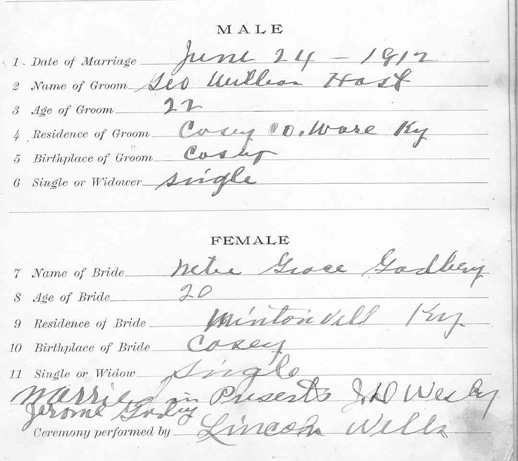 MALE
1 Date of Marriage June 24 - 1912
2 Name of Groom Geo William Hast
3 Age of Groom 22
4 Residence of Groom Casey CO. Ware Ky
5 Birthplace of Groom Casey
6 Single or Widower single
FEMALE
7 Name of Bride Grace Godbery
8 Age of Bride 20
9 Residence of Bride Mintonvill Ky
10 Birthplace of Bride Casey
11 Single or Widow Single
Married in Presents J.D Wesley
Jerome
Ceremony performed by Lincoln Wells